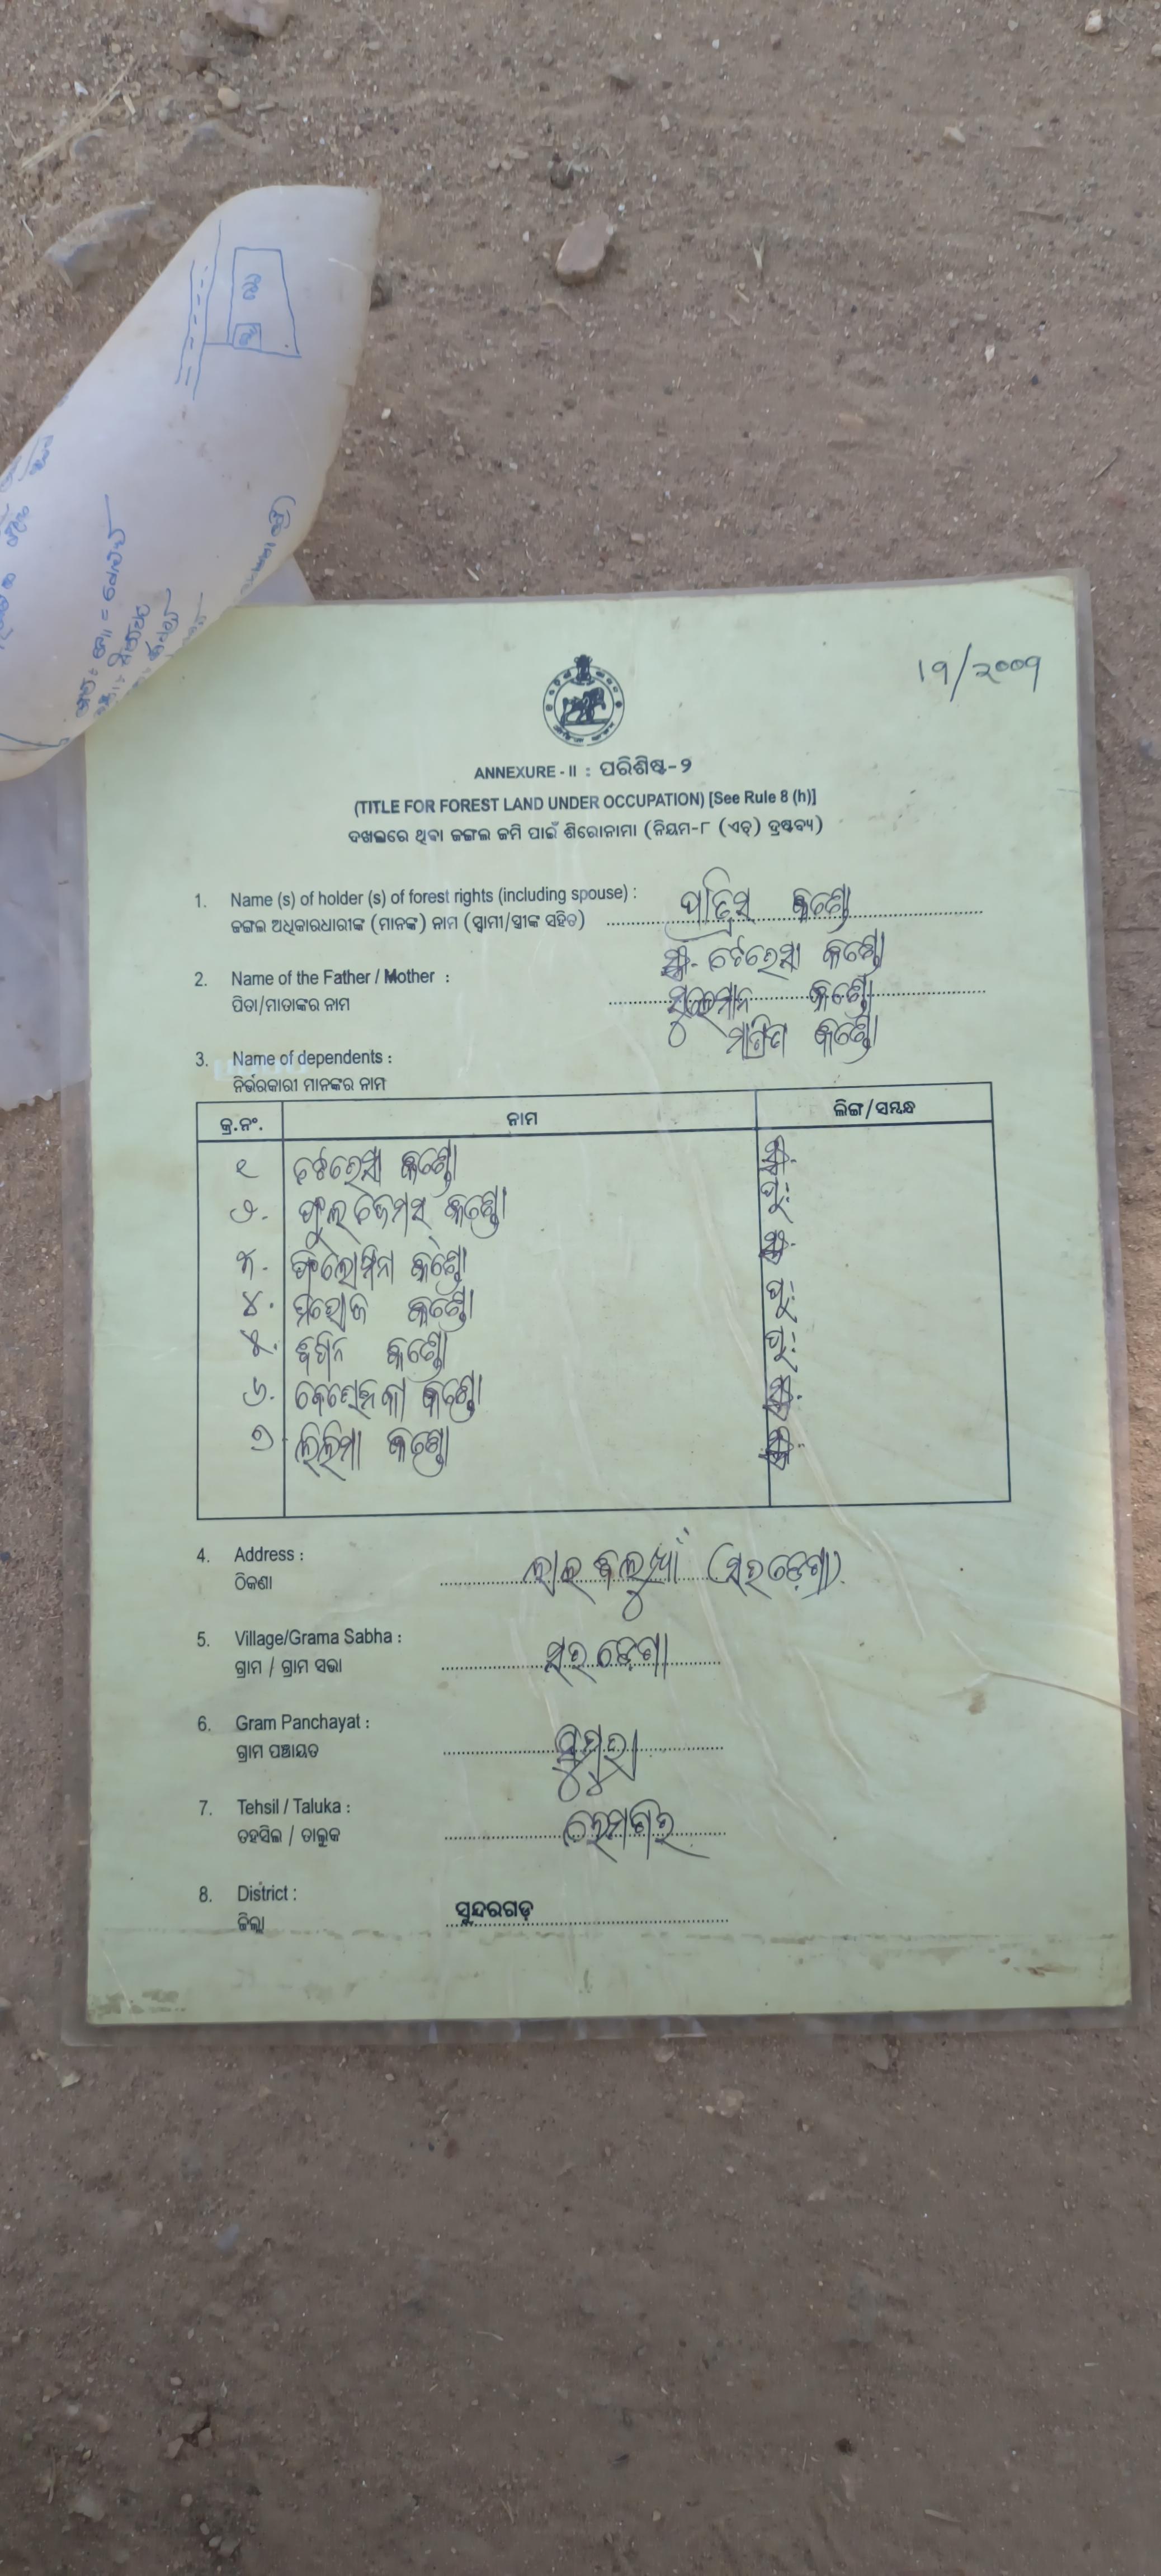 ୧୨/୨୦୦୨
ANNEXURE - II : ପରିଶିଷ୍ଟ-୨
(TITLE FOR FOREST LAND UNDER OCCUPATION) [See Rule 8 (h)]
ଦଖଲରେ ଥିବା ଜଙ୍ଗଲ ଜମି ପାଇଁ ଶିରୋନାମା (ନିୟମ-୮ (ଏଚ୍) ଦ୍ରଷ୍ଟବ୍ୟ)
1. Name (s) of holder (s) of forest rights (including spouse) : ପାତ୍ରିସ୍ କଣ୍ଡୋ
ଜଙ୍ଗଲ ଅଧିକାରଧାରୀଙ୍କ (ମାନଙ୍କ) ନାମ (ସ୍ୱାମୀ/ସ୍ତ୍ରୀଙ୍କ ସହିତ)
ସ୍ତ୍ରୀ- ଟେରେସା କଣ୍ଡୋ
2. Name of the Father / Mother : ସୁଲେମାନ କଣ୍ଡୋ
ପିତା/ମାତାଙ୍କର ନାମ
କଣ୍ଡୋ
3. Name of dependents :
ନିର୍ଭରକାରୀ ମାନଙ୍କର ନାମ
କ୍ର.ନଂ. ନାମ ଲିଙ୍ଗ/ସମ୍ବନ୍ଧ
୧ ଟେରେସା କଣ୍ଡୋ ସ୍ତ୍ରୀ.
୨. ଫୁଲଜେମସ୍ କଣ୍ଡୋ ପୁ:
୩. ଫିଲୋମିନା କଣ୍ଡୋ ସ୍ତ୍ରୀ.
୪. ମନୋଜ କଣ୍ଡୋ ପୁ:
୫. କଣ୍ଡୋ ପୁ:
୬. କଣ୍ଡୋ ସ୍ତ୍ରୀ.
୭ ଲିଲିମା କଣ୍ଡୋ ସ୍ତ୍ରୀ.
4. Address : (ସରଡ଼େଗା)
ଠିକଣା
5. Village/Grama Sabha : ସରଡ଼େଗା
ଗ୍ରାମ / ଗ୍ରାମ ସଭା
6. Gram Panchayat :
ଗ୍ରାମ ପଞ୍ଚାୟତ
7. Tehsil / Taluka : ହେମଗିର
ତହସିଲ / ତାଲୁକ
8. District : ସୁନ୍ଦରଗଡ଼
ଜିଲ୍ଲା